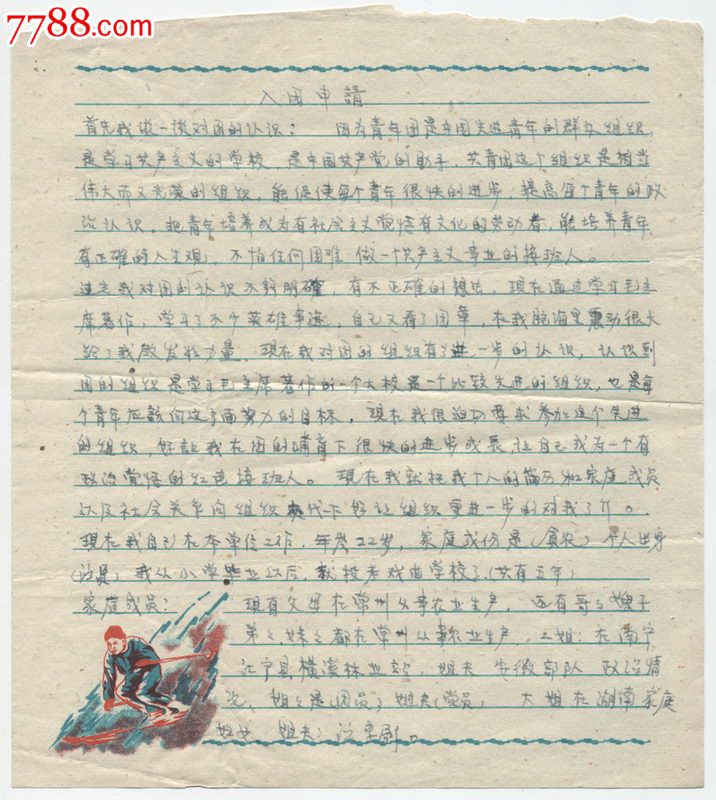 7788.com
入团申請
首先我谈一谈对团的认识： 因为青年团是中国先进青年的群众组织，
是学习共产主义的学校，是中国共产党的助手，共青团这个组织是相当
伟大而又光荣的组织，能促使每个青年很快的进步，提高每个青年的政
治认识，把青年培养成为有社会主义觉悟有文化的劳动者，能培养青年
有正确的人生观，不怕任何困难 做一个共产主义事业的接班人。
过去我对团的认识不够明確，有不正確的想法，现在通过学习毛主
席著作，学习了不少英雄事迹，自己又看了团章，在我脑海里震动很大
给了我启发和力量，现在我对团的组织有了进一步的认识，认识到
团的组织是学习毛主席著作的一个大校是一个比较先进的组织，也是每
个青年应该向这方面努力的目标，现在我很迫切要求参加这个先进
的组织，好讓我在团的哺育下很快的进步成長，让自己成为一个有
政治觉悟的红色接班人。 现在我就把我个人的简历和家庭成员
以及社会关系向组织交代一下好让组织更进一步的对我了介。
现在我自己在本单位工作，年岁22岁，家庭成份是（貧农）个人出身
我从小学毕业以后，就投考戏曲学校了（共有五年）
家庭成员： 现有父母在常州从事农业生产，还有哥々嫂子
弟々妹々都在常州从事农业生产，二姐：在南宁
江宁县横溪林业站，姐夫 安徽部队 政治情
况，姐々是（团员）姐夫（党员， 大姐在湖南家庭
妇女 姐夫：